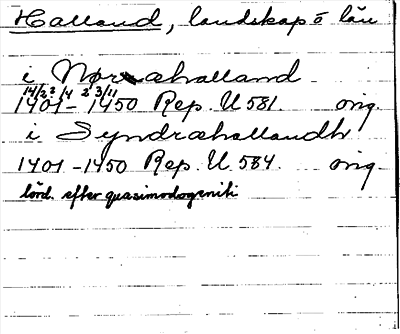 Halland, landskap o län
i Nørrahalland
14/2 3/4 2 3/11
1401-1450 Rep. U 581. orig.
i Syndrahallandh
1401-1450 Rep. U. 584. orig.
lörd. efter quasimodogeniti